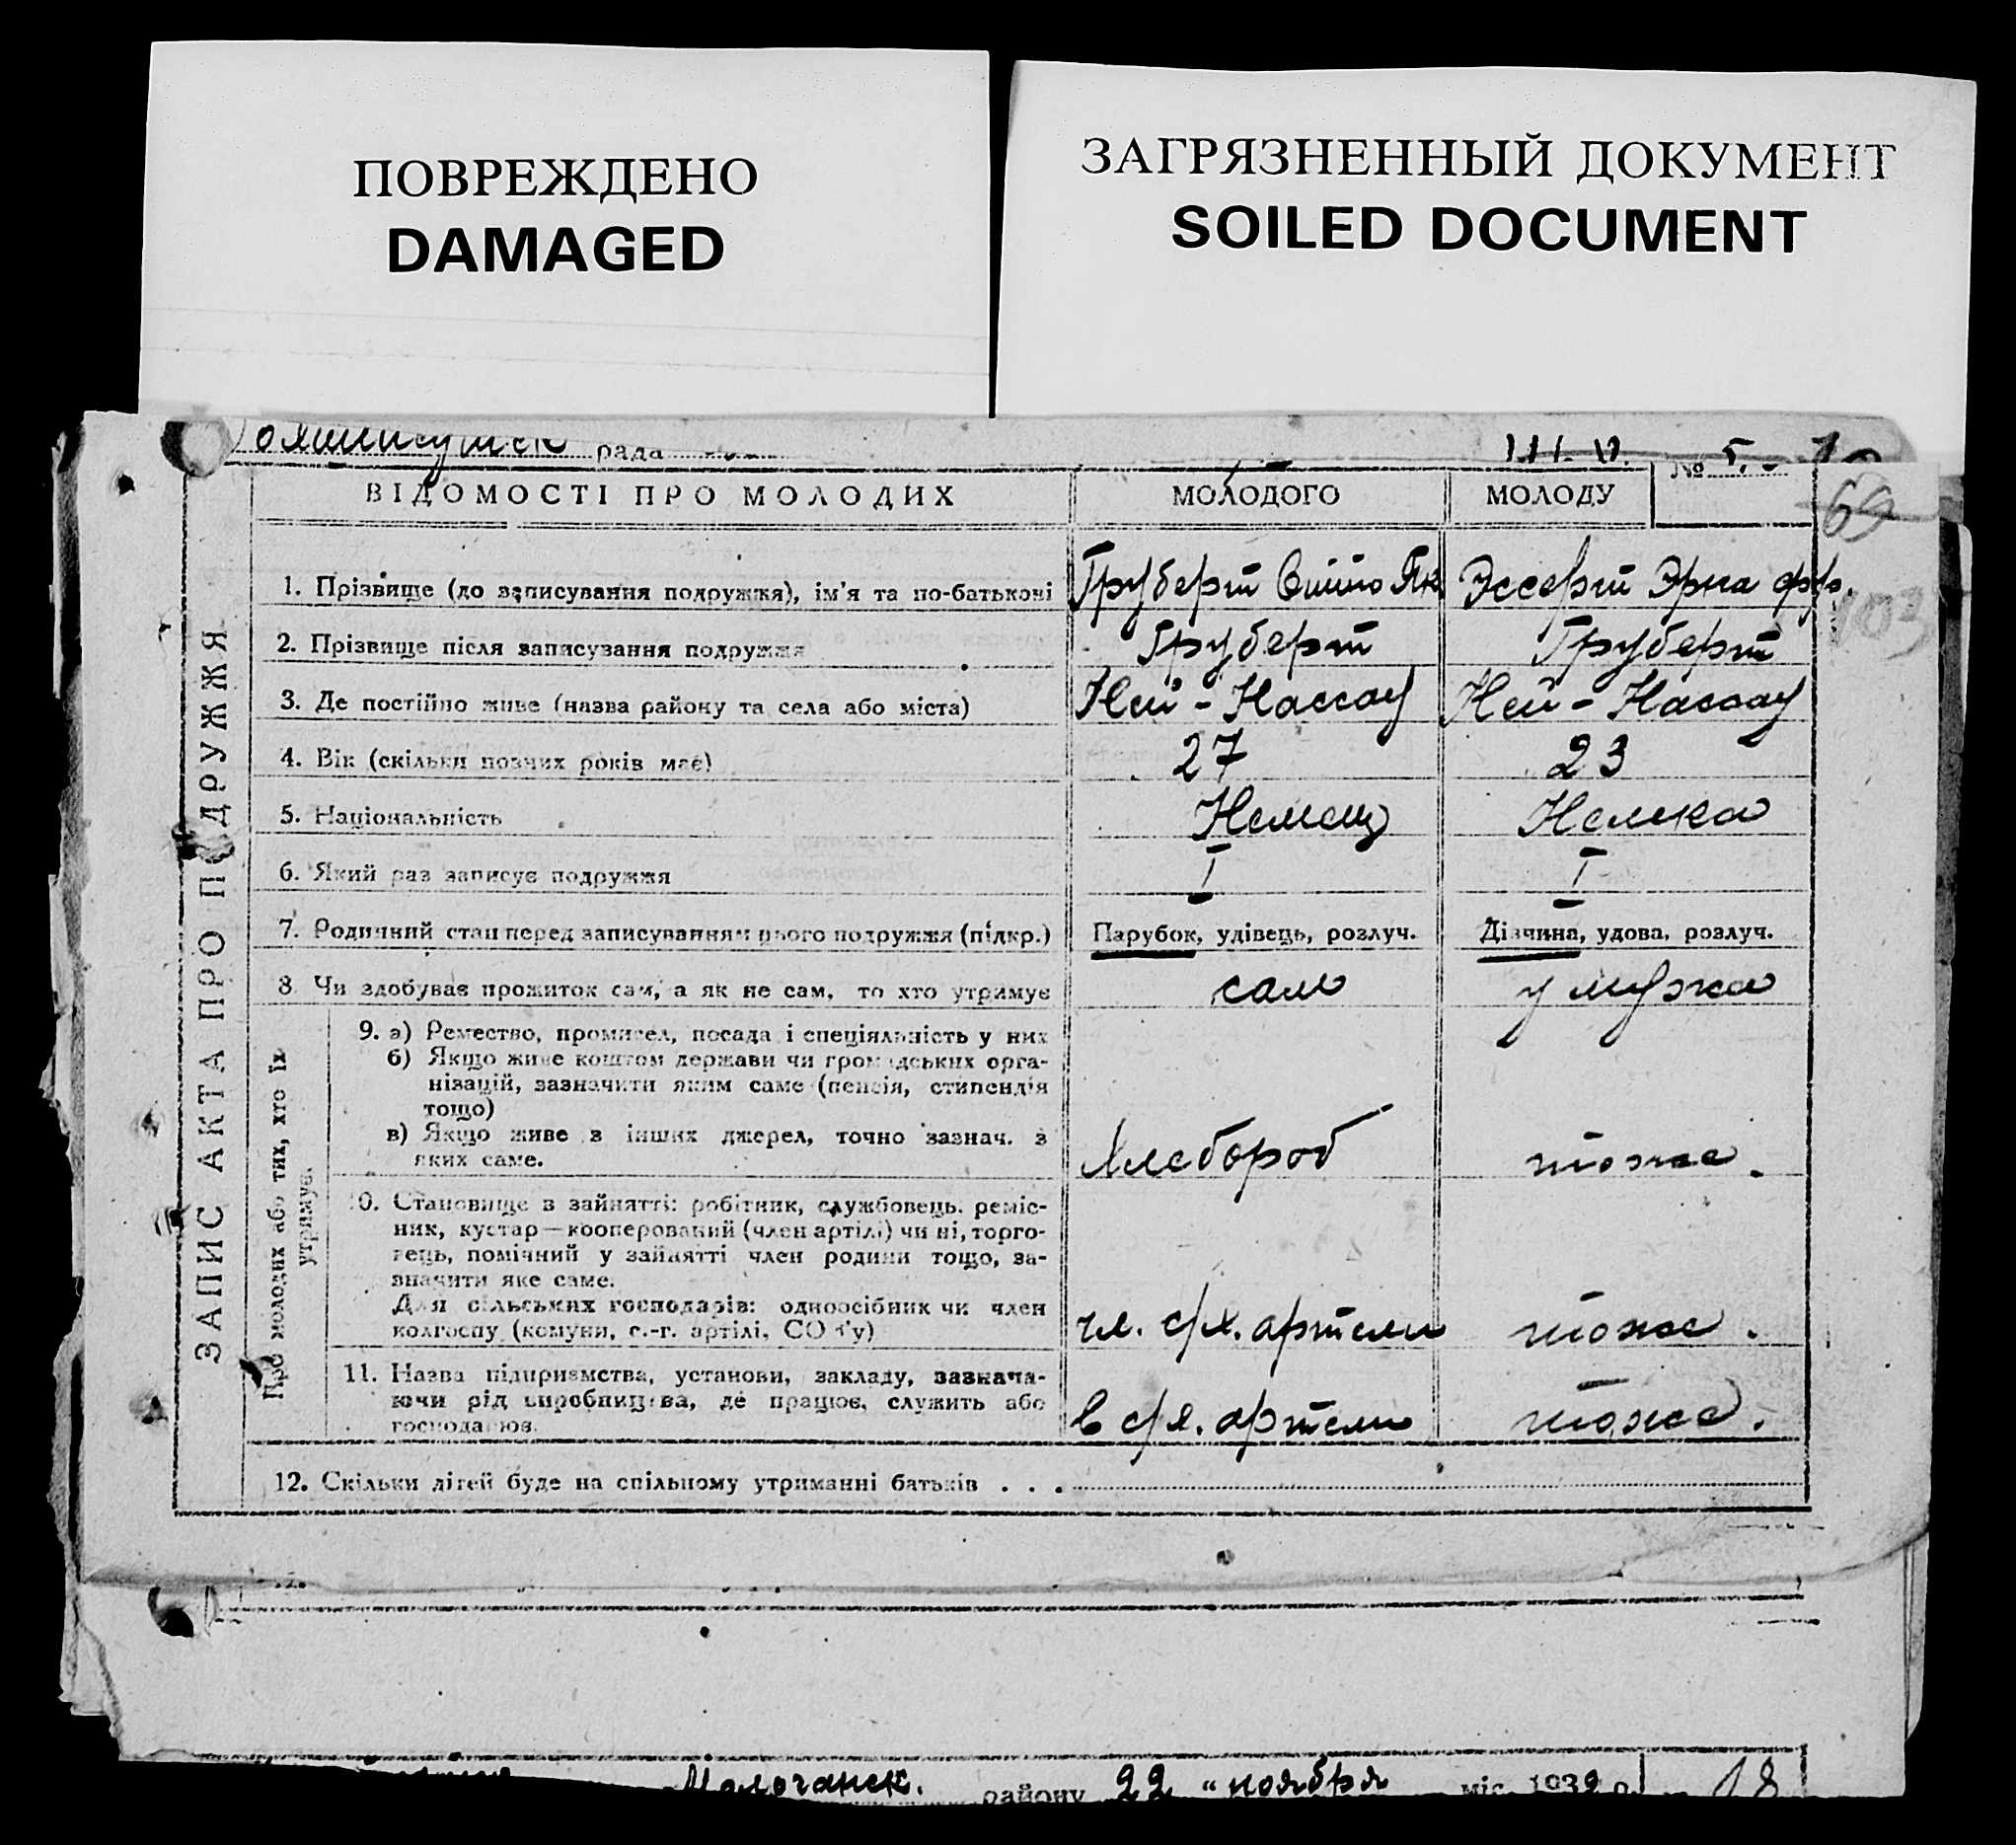 ПОВРЕЖДЕНО
DAMAGED
ЗАГРЯЗНЕННЫЙ ДОКУМЕНТ
SOILED DOCUMENT
рада
№
69
103
ЗАПИС АКТА ПРО ПОДРУЖЖЯ
ВІДОМОСТІ ПРО МОЛОДИХ МОЛОДОГО МОЛОДУ
1. Прізвище (до записування подружжя), ім'я та по-батькові Груберт Отто Як Эссерт Эрна Фр.
2. Прізвище після записування подружжя Груберт Груберт
3. Де постійно живе (назва району та села або міста) Ней-Нассау Ней-Нассау
4. Вік (скільки повних років має) 27 23
5. Національність Немец Немка
6. Який раз записує подружжя I I
7. Родинний стан перед записуванням цього подружжя (підкр.) Парубок, удівець, розлуч. Дівчина, удова, розлуч.
8. Чи здобуває прожиток сам, а як не сам, то хто утримує сам у мужа
Про молодих або тих, хто їх утримує.
9. а) Ремество, промисел, посада і спеціяльність у них
б) Якщо живе коштом держави чи громадських орга-
нізацій, зазначити яким саме (пенсія, стипендія
тощо)
в) Якщо живе з інших джерел, точно зазнач. з
яких саме. Хлебороб тоже.
10. Становище в зайнятті: робітник, службовець, реміс-
ник, кустар—кооперований (член артілі) чи ні, торго-
вець, помічний у зайнятті член родини тощо, за-
значити яке саме.
Для сільських господарів: одноосібник чи член
колгоспу (комуни, с.-г. артілі, СОЗ'у) чл. с/х. артели тоже.
11. Назва підприємства, установи, закладу, зазнача-
ючи рід виробництва, де працює, служить або
господарює. в с/х. артели тоже.
12. Скільки дітей буде на спільному утриманні батьків . . .
Молочанск. району 22 " ноября міс. 1932 р. 18